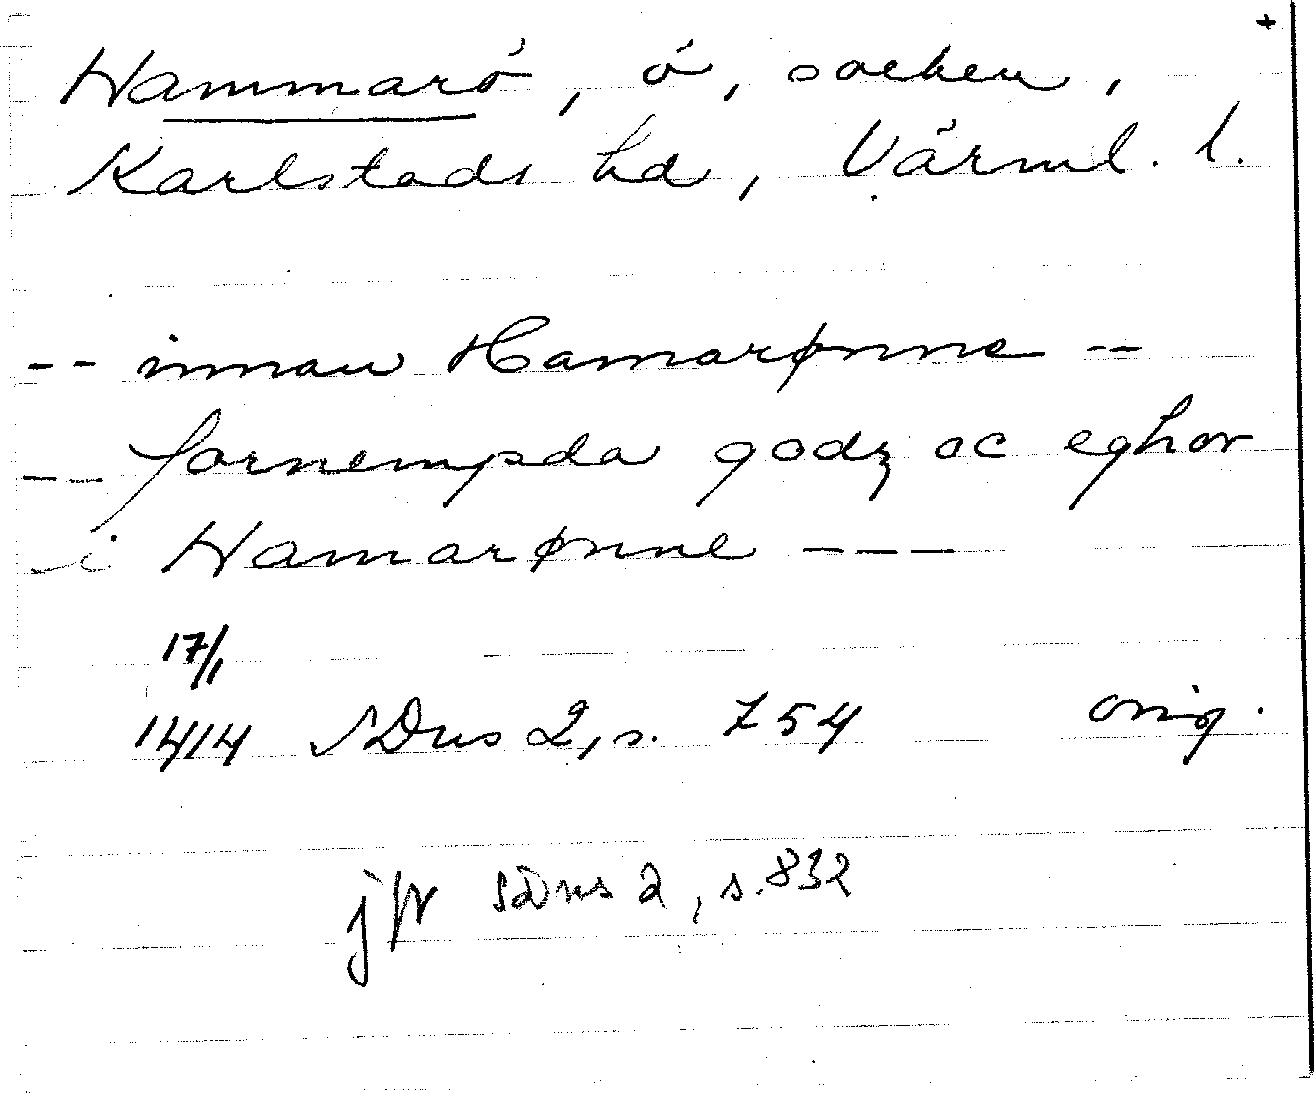 +
Hammarö, ö, socken,
Karlstads hd, Värml. l.
-- innan Hamarønne --
-- fornempda godz oc eghor
i Hamarønne ---
17/1
1414 SDns 2, s. 754 orig.
jfr SDns 2, s. 832